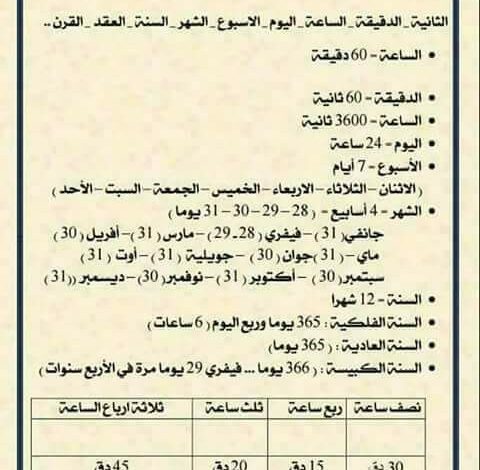 الثانية_الدقيقة_الساعة_اليوم_الاسبوع_الشهر_السنة_العقد_القرن..
• الساعة = 60 دقيقة
• الدقيقة = 60 ثانية
• الساعة = 3600 ثانية
• اليوم = 24 ساعة
• الأسبوع = 7 أيام
(الاثنان – الثلاثاء – الاربعاء – الخميس – الجمعة – السبت – الأحد)
• الشهر = 4 أسابيع = (28 – 29 – 30 – 31 يوما)
جانفي (31) – فيفري (28_29) – مارس (31) – أفريل (30)
ماي – (31) جوان (30) – جويلية (31) – أوت (31)
سبتمبر (30) – أكتوبر (31) – نوفمبر (30) – ديسمبر ((31)
• السنة = 12 شهرا
• السنة الفلكية : 365 يوما وربع اليوم (6 ساعات)
• السنة العادية : (365 يوما)
• السنة الكبيسة : (366 يوما ... فيفري 29 يوما مرة في الأربع سنوات)
نصف ساعة ربع ساعة ثلث ساعة ثلاثة ارباع الساعة
30 دق 15 دق 20 دق 45 دق